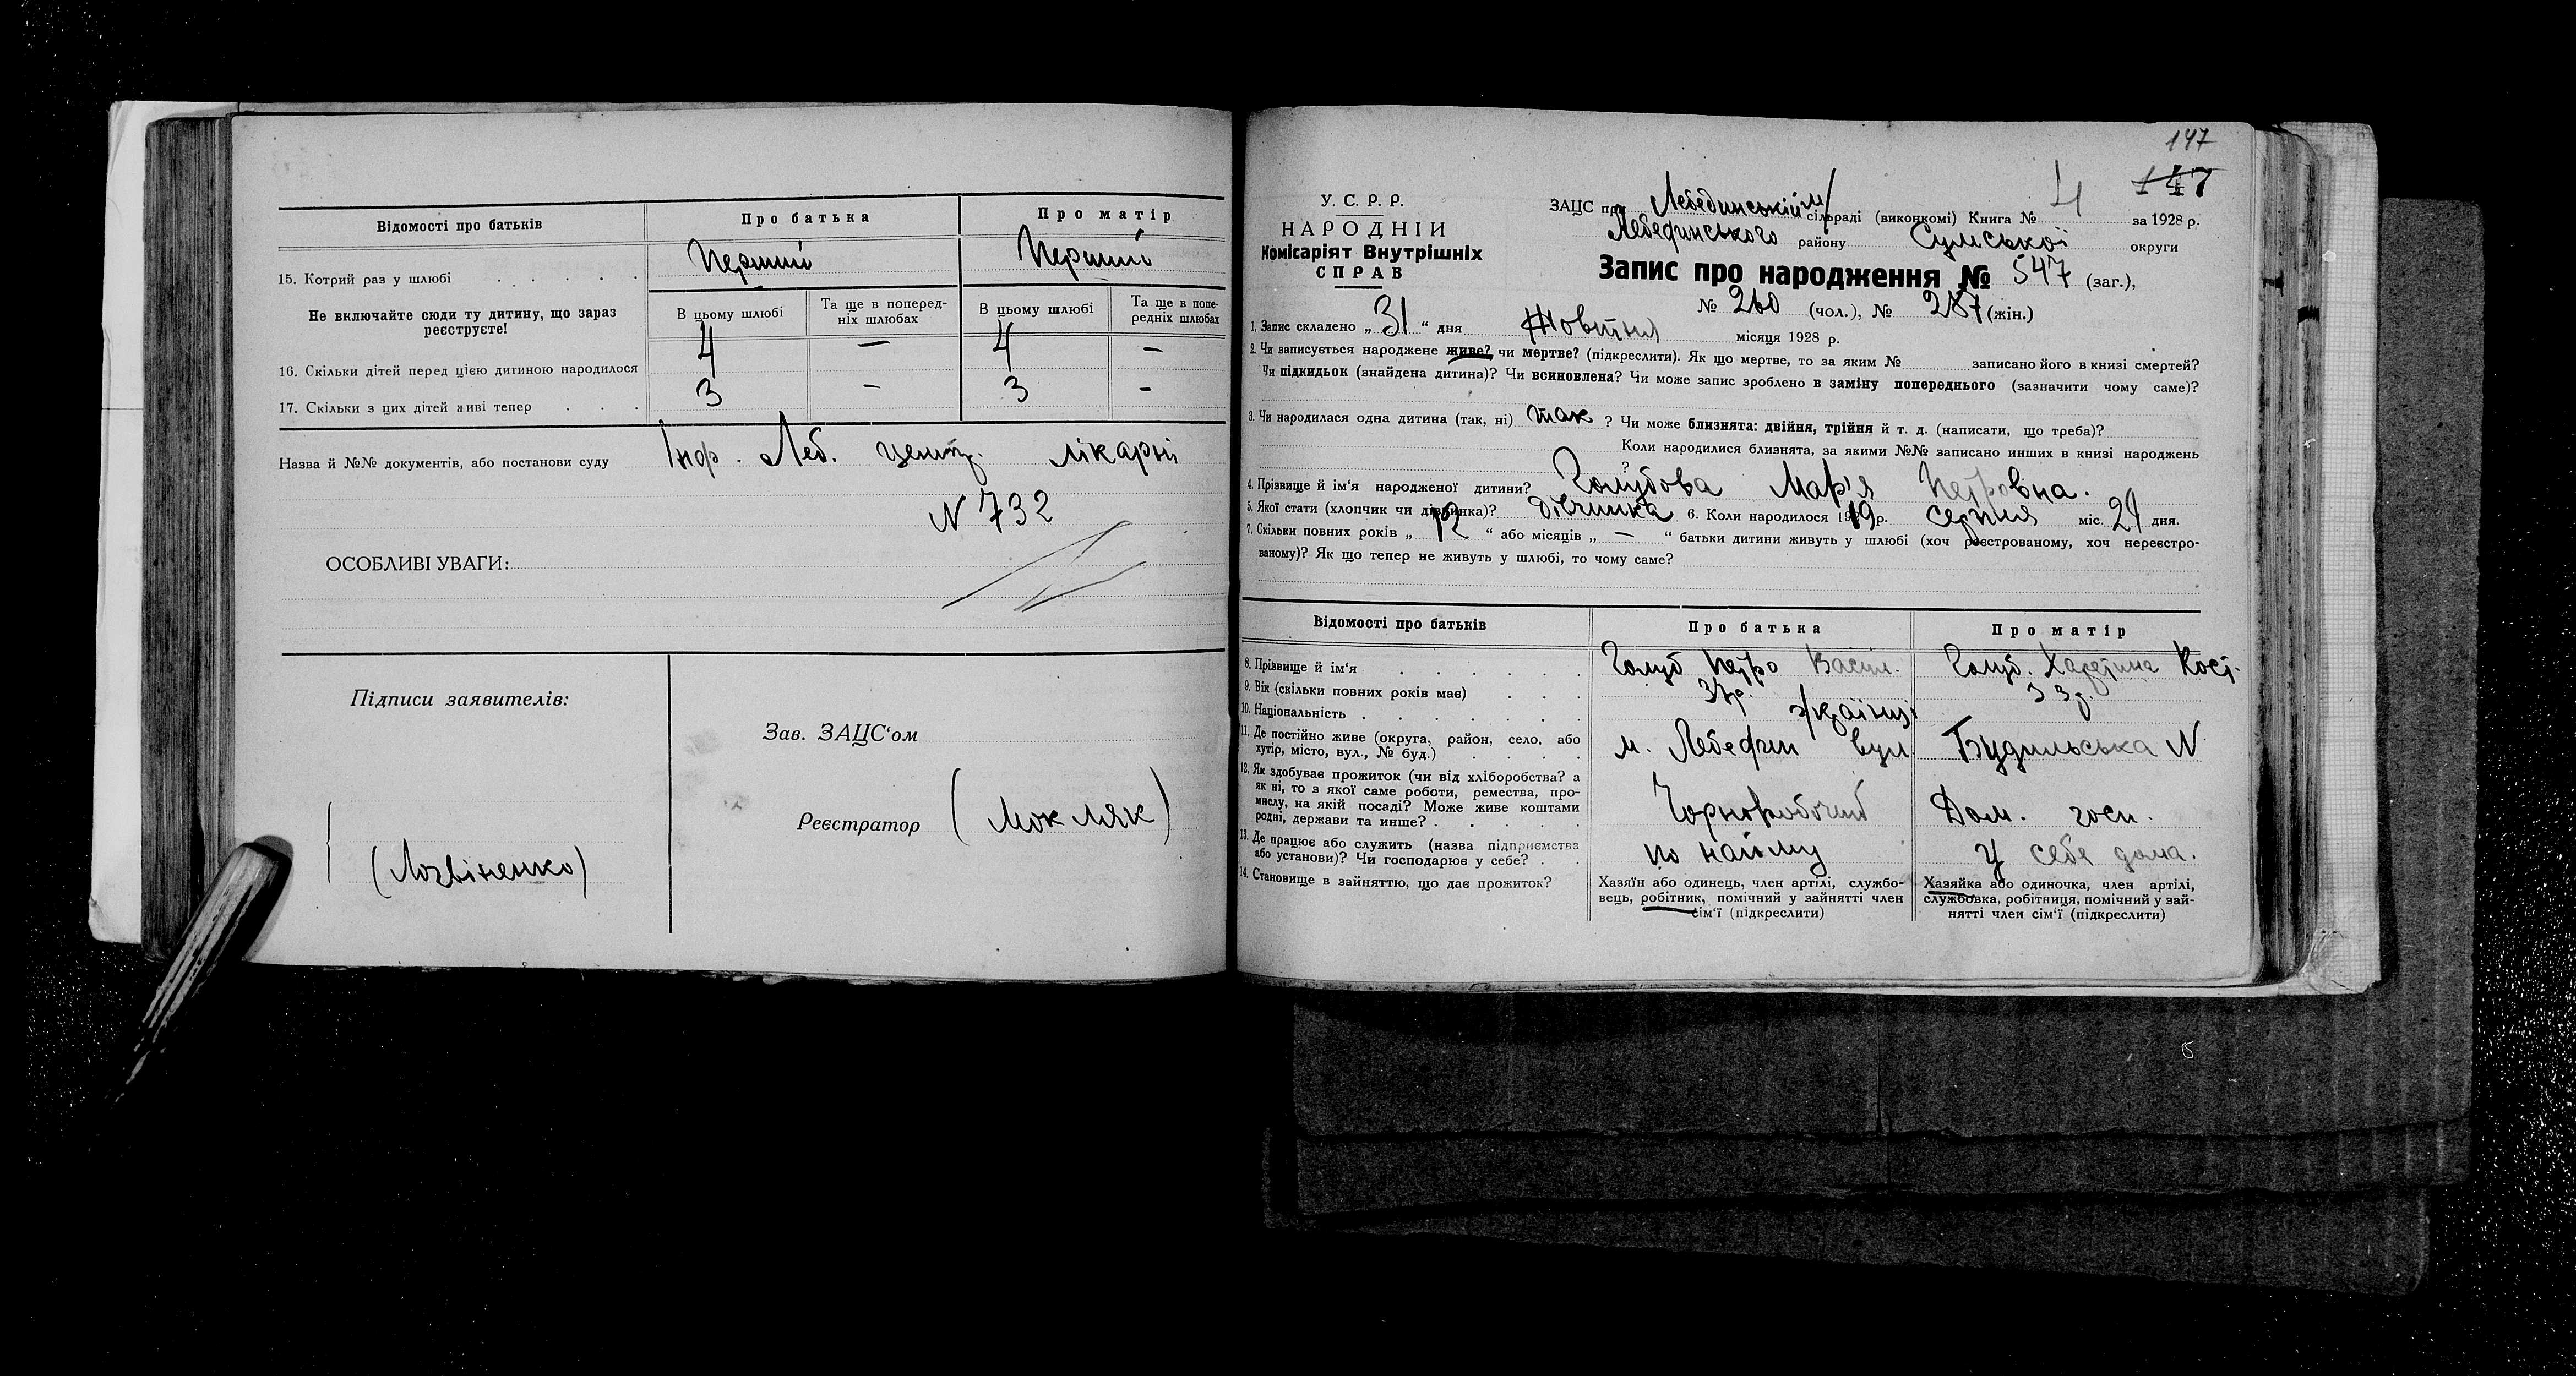 Відомості про батьків
Про батька
Про матір
15. Котрий раз у шлюбі . . . . .
Перший
Перший
Не включайте сюди ту дитину, що зараз реєструєте!
В цьому шлюбі
Та ще в поперед-
ніх шлюбах
В цьому шлюбі
Та ще в попе-
редніх шлюбах
16. Скільки дітей перед цією дитиною народилося
4 — 4 —
17. Скільки з цих дітей живі тепер . . .
3 - 3 -
Назва й №№ документів, або постанови суду Інф. Леб. центр. лікарні
N 732
ОСОБЛИВІ УВАГИ:
Підписи заявителів:
(Логвіненко)
Зав. ЗАЦС‘ом
Реєстратор (Мокляк)
147
147
У. С. Р. Р.
НАРОДНІЙ
Комісаріят Внутрішніх
СПРАВ
ЗАЦС при Лебединській м/ сільраді (виконкомі) Книга № 4 за 1928 р.
Лебединського району Сумської округи
Запис про народження № 547 (заг.),
№ 260 (чол.), № 287 (жін.)
1. Запис складено „ 31 “ дня Жовтня місяця 1928 р.
2. Чи записується народжене живе? чи мертве? (підкреслити). Як що мертве, то за яким № записано його в книзі смертей?
Чи підкидьок (знайдена дитина)? Чи всиновлена? Чи може запис зроблено в заміну попереднього (зазначити чому саме)?
3. Чи народилася одна дитина (так, ні) так ? Чи може близнята: двійня, трійня й т. д. (написати, що треба)?
Коли народилися близнята, за якими №№ записано инших в книзі народжень
?
4. Прізвище й ім‘я народженої дитини? Голубова Мар'я Петровна.
5. Якої стати (хлопчик чи дівчинка)? дівчинка 6. Коли народилося 1919 р. серпня міс. 24 дня.
7. Скільки повних років „ 12 “ або місяців „ — “ батьки дитини живуть у шлюбі (хоч реєстрованому, хоч нереєстро-
ваному)? Як що тепер не живуть у шлюбі, то чому саме?
Відомості про батьків
Про батька
Про матір
8. Прізвище й ім‘я . . . . . .
Голуб Петро Васил.
Голуб. Харетина Кост.
9. Вік (скільки повних років має) . . .
37р.
33р.
10. Національність . . . . . . .
українці
11. Де постійно живе (округа, район, село, або
хутір, місто, вул., № буд.) . . . .
м. Лебедин вул. Будильська N
12. Як здобуває прожиток (чи від хліборобства? а
як ні, то з якої саме роботи, ремества, про-
мислу, на якій посаді? Може живе коштами
родні, держави та инше? . . . . .
Чорноробочий
Дом. госп.
13. Де працює або служить (назва підприємства
або установи)? Чи господарює у себе? . .
по найому
У себе дома.
14. Становище в зайняттю, що дає прожиток?
Хазяїн або одинець, член артілі, службо-
вець, робітник, помічний у зайнятті член
сім‘ї (підкреслити)
Хазяйка або одиночка, член артілі,
службовка, робітниця, помічний у зай-
нятті член сім‘ї (підкреслити)